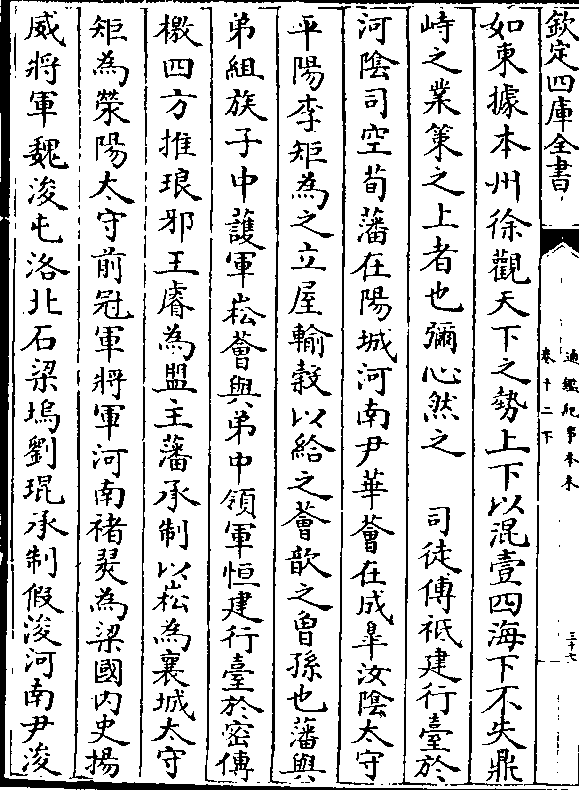 欽定四庫全書
通鑑紀事本末
卷十二下
三十七
如東據本州徐觀天下之勢上下以混壹四海下不失鼎
峙之業策之上者也彌心然之　司徒傅祗建行臺於
河陰司空荀藩在陽城河南尹華薈在成臯汝陰太守
平陽李矩為之立屋輸榖以給之薈歆之曾孫也藩與
弟組族子中護軍崧薈與弟中領軍恒建行臺於密傳
檄四方推琅邪王睿為盟主藩承制以崧為襄城太守
矩為滎陽太守前冠軍將軍河南褚翜為梁國內史揚
威將軍魏浚屯洛北石梁塢劉琨承制假浚河南尹浚